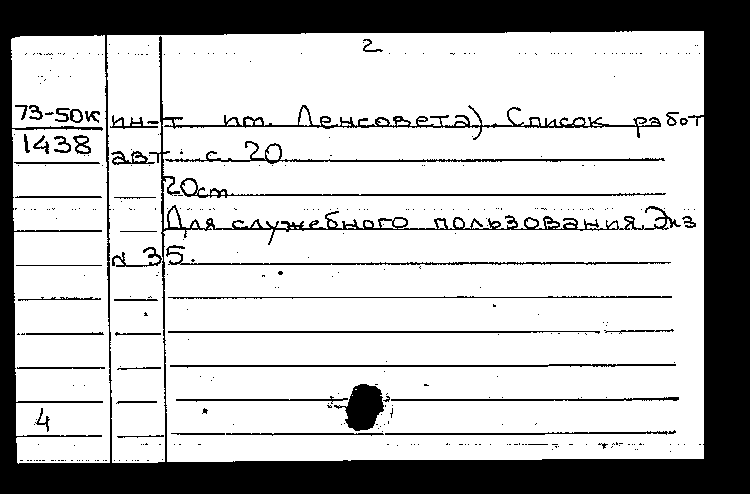 2
73-50к ин-т им. Ленсовета). Список работ
1438 авт.: с. 20
20см
Для служебного пользования. Экз
N 35.
4